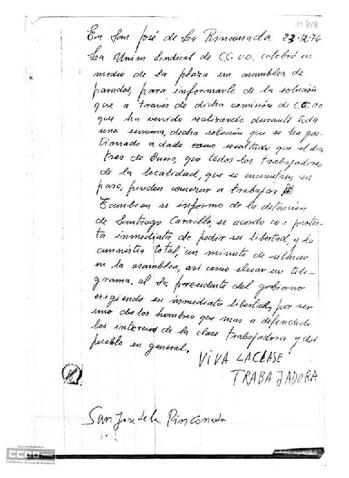 En San José de la Rinconada 23-12-76
La Union Sindical de CC.OO. celebró en
medio de la plaza un asamblea de
parados, para informarle de la solución
que a través de dicha comisión de CC.OO
que ha venido realizando durante toda
una semana, dicha solución que se ha ges-
tionado a dado como resultado que el dia
tres de Enero, que todos los trabajadores
de la localidad, que se encuentran en
paro, puedan comenzar a trabajar
Tambien se informo de la detención
de Santiago Carrillo, se acordo con protes-
ta inmediata de pedir su libertad, y la
amnistia total, un minuto de silencio
en la asamblea, asi como elevar un tele-
grama. al Sr. presidente del gobierno
exigiendo su inmediata libertad, por ser
uno de los hombres que mas a defendido
los intereses de la clase trabajadora y del
pueblo en general.
VIVA LA CLASE
TRABAJADORA
San Jose de la Rinconada
CCOO